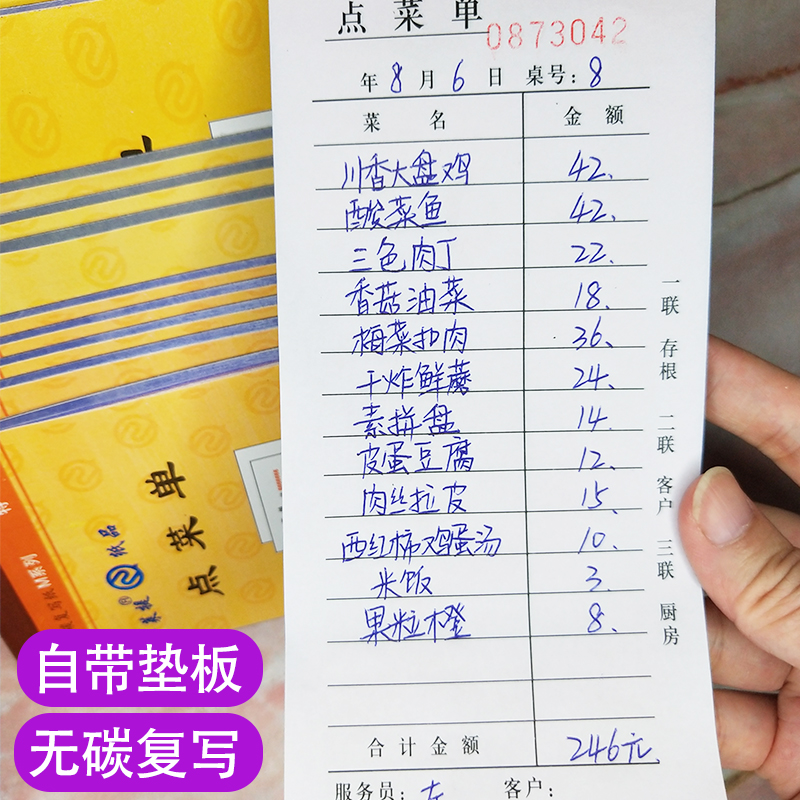 点菜单
0873042
年8月6日 桌号:8
菜 名 金 额
川香大盘鸡 42、
酸菜鱼 42、
三色肉丁 22、
香菇油菜 18、
梅菜扣肉 36、
干炸鲜蘑 24、
素拼盘 14、
皮蛋豆腐 12、
肉丝拉皮 15、
西红柿鸡蛋汤 10、
米饭 3、
果粒橙 8、
合计金额 246元
服务员: 客户:
一联 存根 二联 客户 三联 厨房
点菜单
自带垫板
无碳复写